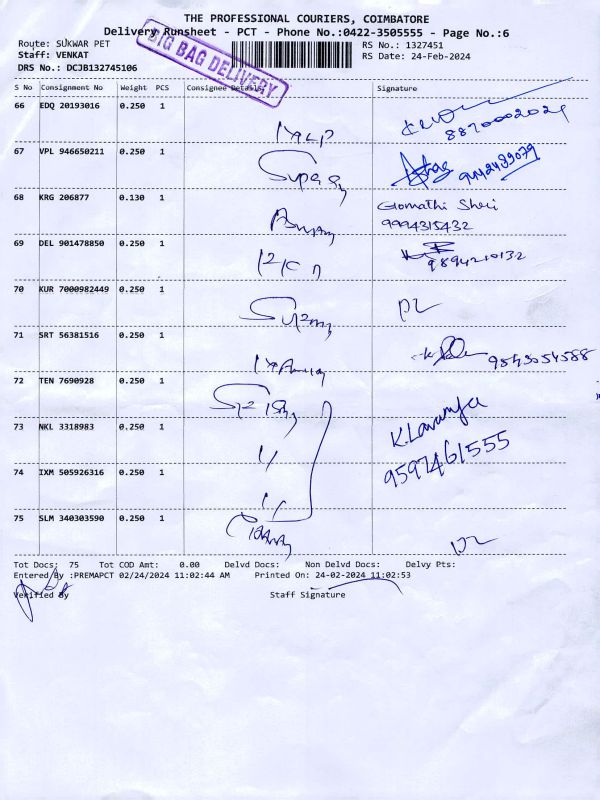 THE PROFESSIONAL COURIERS, COIMBATORE
Delivery Runsheet - PCT - Phone No.:0422-3505555 - Page No.:6
Route: SUKWAR PET RS No.: 1327451
Staff: VENKAT RS Date: 24-Feb-2024
DRS No.: DCJB132745106
BIG BAG DELIVERY
S No Consignment No Weight PCS Consignee Details Signature
66 EDQ 20193016 0.250 1
8870002024
67 VPL 946650211 0.250 1
9442439079
68 KRG 206877 0.130 1 Gomathi Shri
9994315432
69 DEL 901478850 0.250 1
9894210132
70 KUR 7000982449 0.250 1
71 SRT 56381516 0.250 1
9543054588
72 TEN 7690928 0.250 1
73 NKL 3318983 0.250 1 K.Lavanya
9597461555
74 IXM 505926316 0.250 1
75 SLM 340303590 0.250 1
Tot Docs: 75 Tot COD Amt: 0.00 Delvd Docs: Non Delvd Docs: Delvy Pts:
Entered By :PREMAPCT 02/24/2024 11:02:44 AM Printed On: 24-02-2024 11:02:53
Verified By Staff Signature